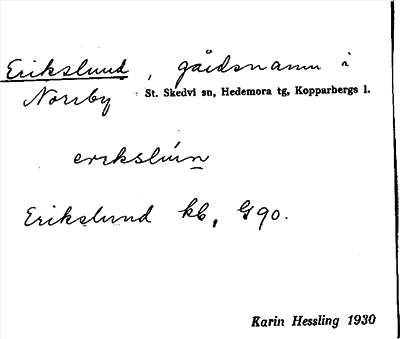 Erikslund, gårdsnamn i
Norrby St. Skedvi sn, Hedemora tg, Kopparbergs l.
erikslún
Erikslund kb, G90.
Karin Hessling 1930